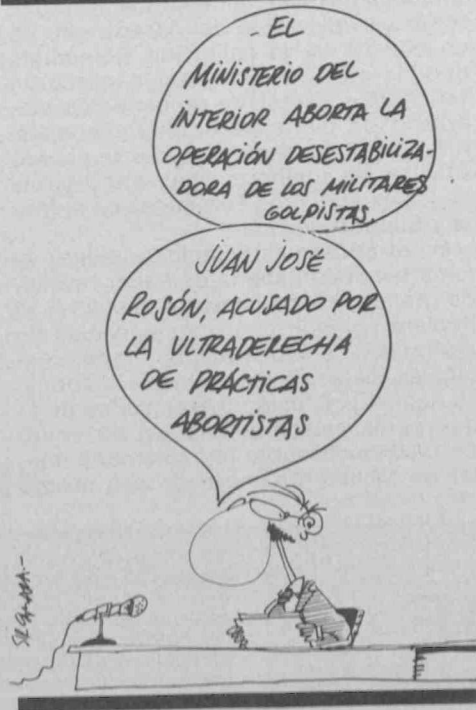 - EL
MINISTERIO DEL
INTERIOR ABORTA LA
OPERACIÓN DESESTABILIZA-
DORA DE LOS MILITARES
GOLPISTAS.
JUAN JOSÉ
ROSÓN, ACUSADO POR
LA ULTRADERECHA
DE PRÁCTICAS
ABORTISTAS